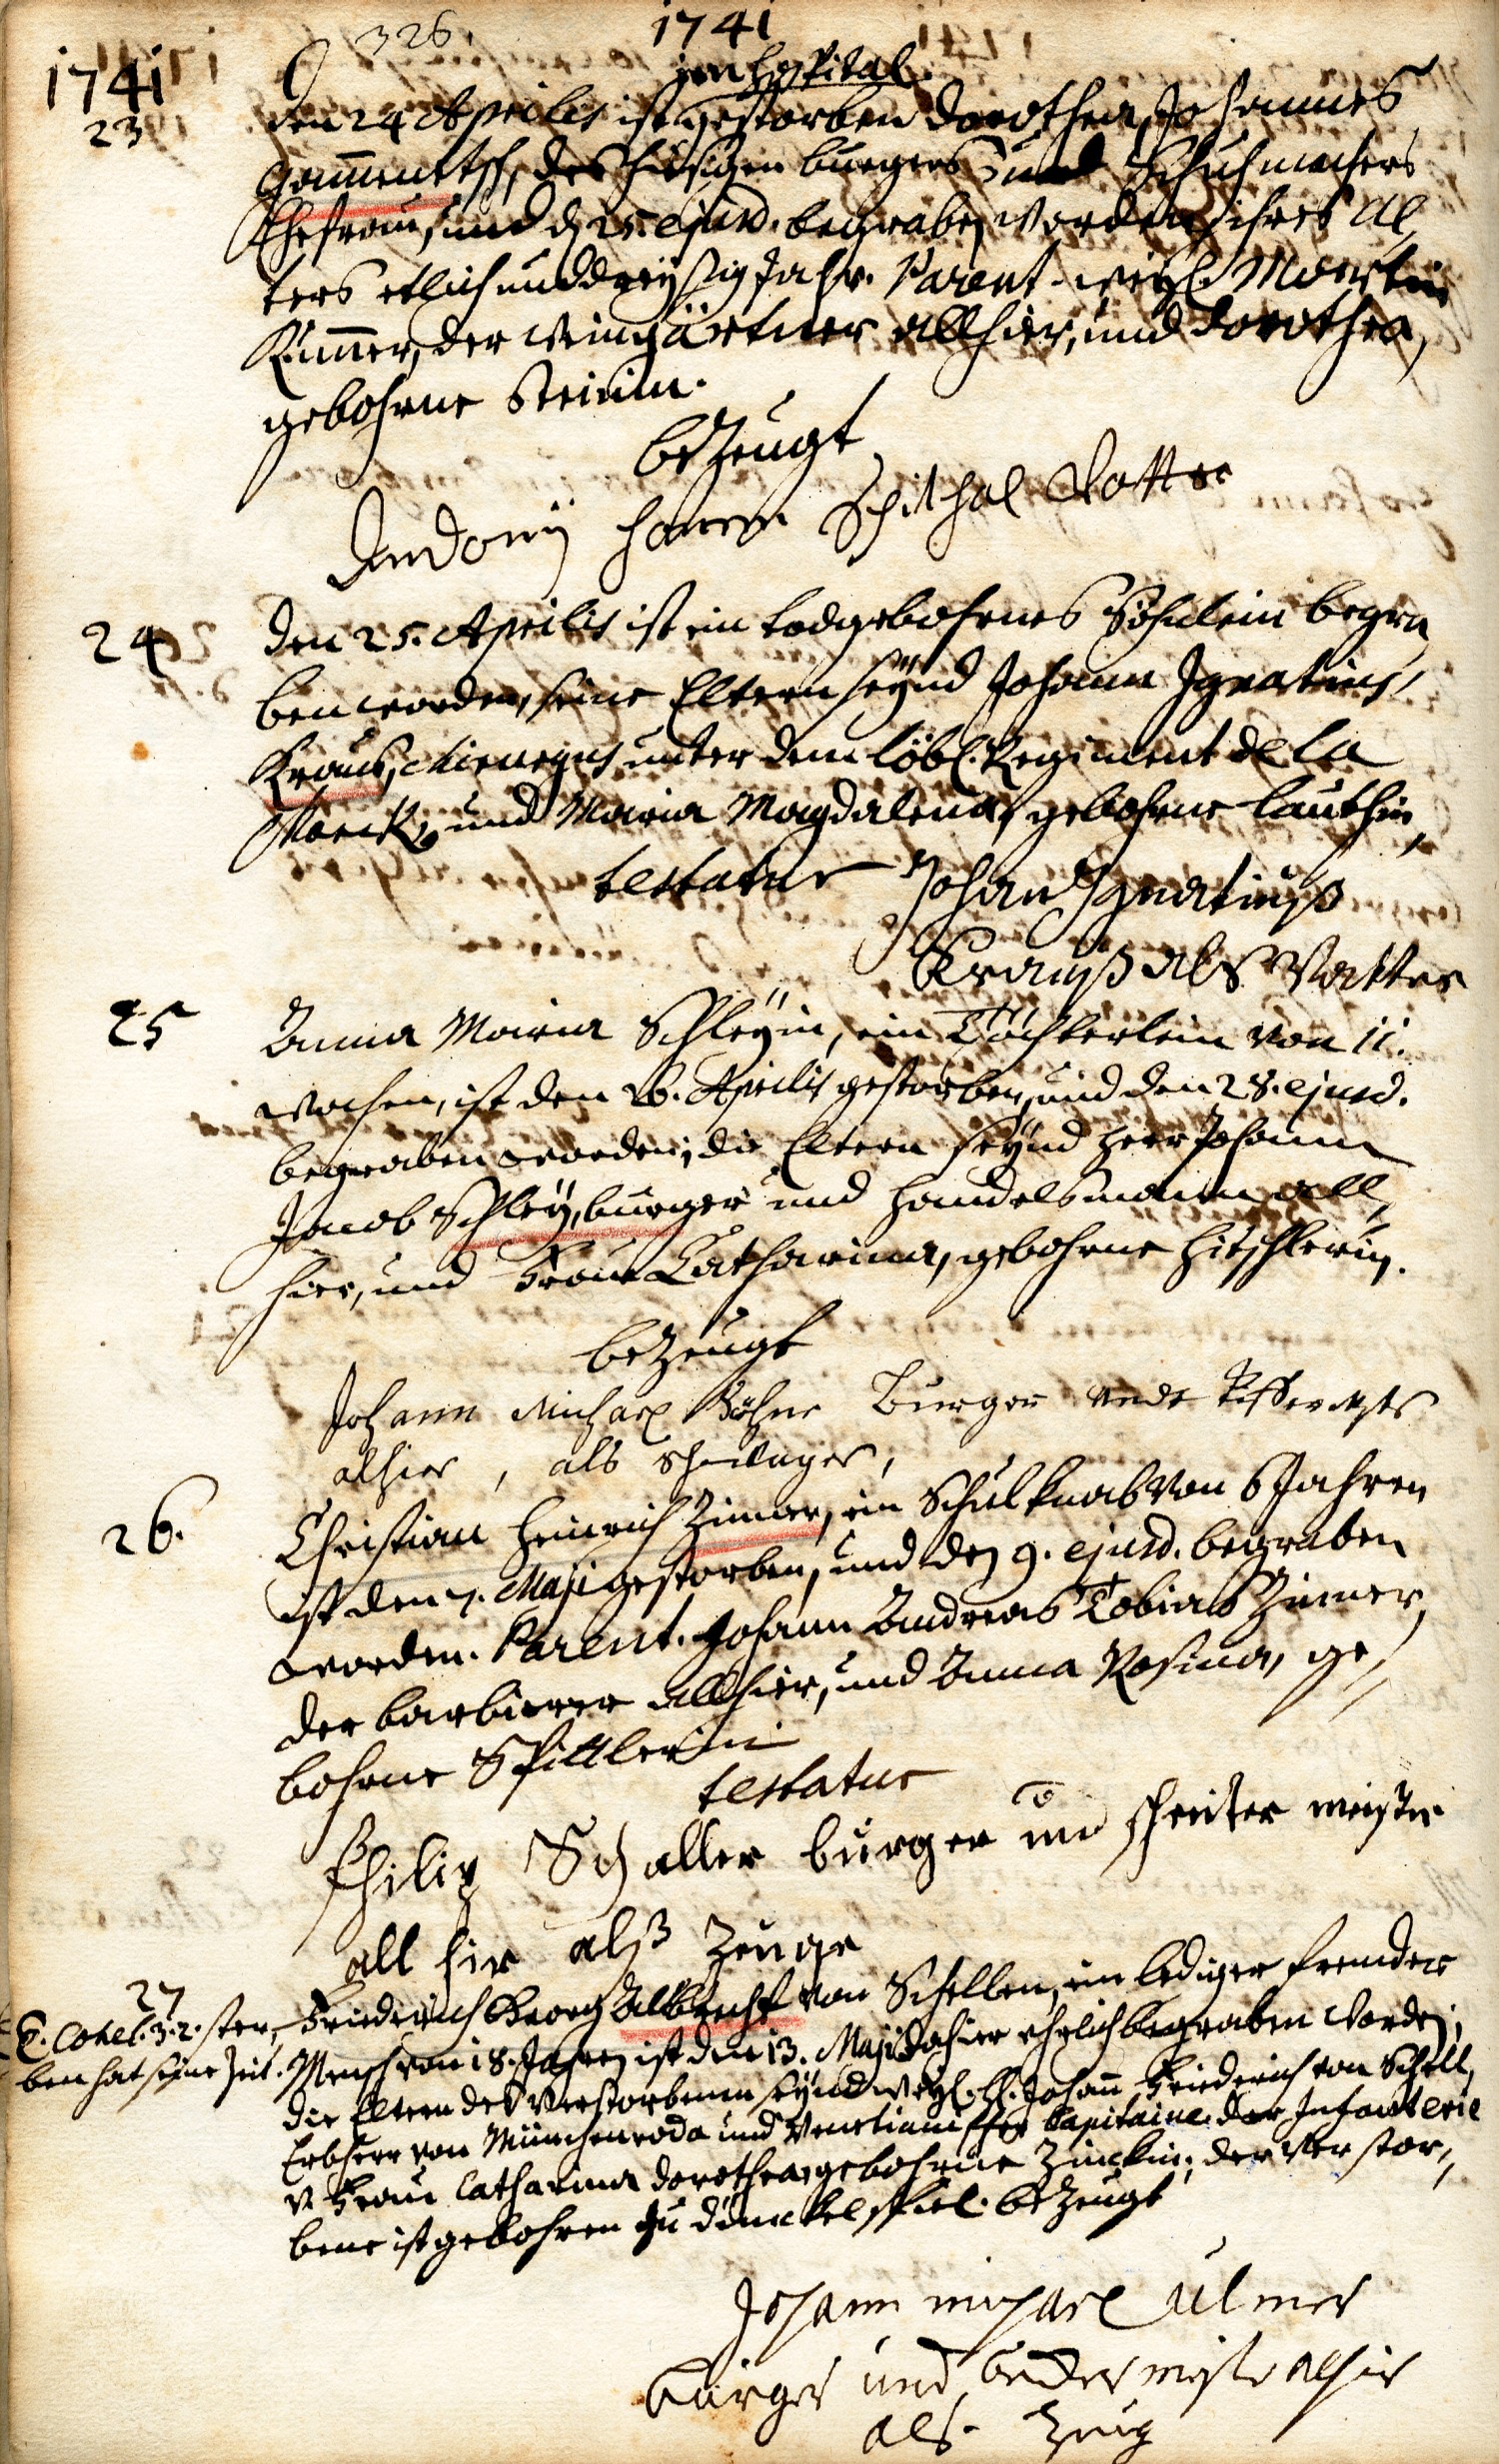 326.
1741
1741
im Hospital.
23
Den 24 Aprilis ist gestorben Dorothea, Johannes
des hiesigen burgers und Schuhmachers
Ehefrau, und d. 25. ejusd. begraben worden, ihres Al-
ters etlich und dreyßig Jahr. Parent. weyl. Martin
der weingärtner allhier, und Dorothea,
gebohrne Steinin.
bezeugt
Vatter
24
Den 25. Aprilis ist ein todgebohrnes Söhnlein begra-
ben worden, seine Eltern seynd Johann Ignatius
Kraus, Chirurgus unter dem löbl. Regiment de la
Marck, und Maria Magdalena, gebohrne Lauthin
testatur Johan Ignatiuß
Krauß als Vatter
25
Anna Maria Schleyin, ein Töchterlein von 11.
wochen, ist den 26. Aprilis gestorben, und den 28. ejusd.
begraben worden; die Eltern seynd Herr Johann
Jacob Schley, burger und Handelsmann all-
hier, und Frau Catharina, gebohrne Hitschlerin.
bezeugt
Johann Michael Böhm Burger
alhier, als schwager,
26.
Christian Heinrich Zimer, ein Schulknab von 6 Jahren
ist den 7. Maji gestorben, und den 9. ejusd. begraben
worden. Parent. Johann Andreas Tobias Zimer,
der barbierer allhier, und Anna Rosina, ge-
bohrne Spittlerin
testatur
Philip Schaller burger und meister
all hir alß Zeuge
27
E. Cohel. 3. 2. ster-
ben hat seine Zeit.
Friederich Georg Albrecht von Schellen, ein lediger frembder
Mensch von 18. Jahren ist den 13. Maji dahier ehrlich begraben worden;
die Eltern des Verstorbenen seynd weyl. H. Johann Friederich von Schell,
Erbherr von Münchenroda und Venetianischer Capitaine der Infanterie
v Frau Catharina Dorothea, gebohrne Zinckin; der Verstor-
bene ist gebohren zu Dünckelspiel. bezeugt
Johann michael Ulmer
burger und alhir
als Zeug